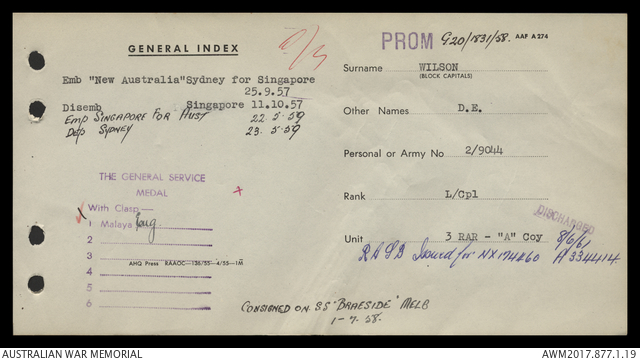 GENERAL INDEX
Emb "New Australia"Sydney for Singapore
25.9.57
Disemb Singapore 11.10.57
Emp SINGAPORE FOR AUST 22.5.59
Dep SYDNEY 23.5.59
THE GENERAL SERVICE
MEDAL
With Clasp
1 Malaya
2
3
4
5
6
AHQ Press RAAOC—136/55—4/55—1M
CONSIGNED ON SS 'BRAESIDE' MELB
1-7.58.
PROM G20/1831/58. AAF A 274
Surname WILSON
(BLOCK CAPITALS)
Other Names D.E.
Personal or Army No 2/9044
Rank L/Cpl
DISCHARGED
Unit 3 RAR - "A" Coy 8/6/61
Issued for NX174860 A334414
AUSTRALIAN WAR MEMORIAL
AWM2017.877.1.19